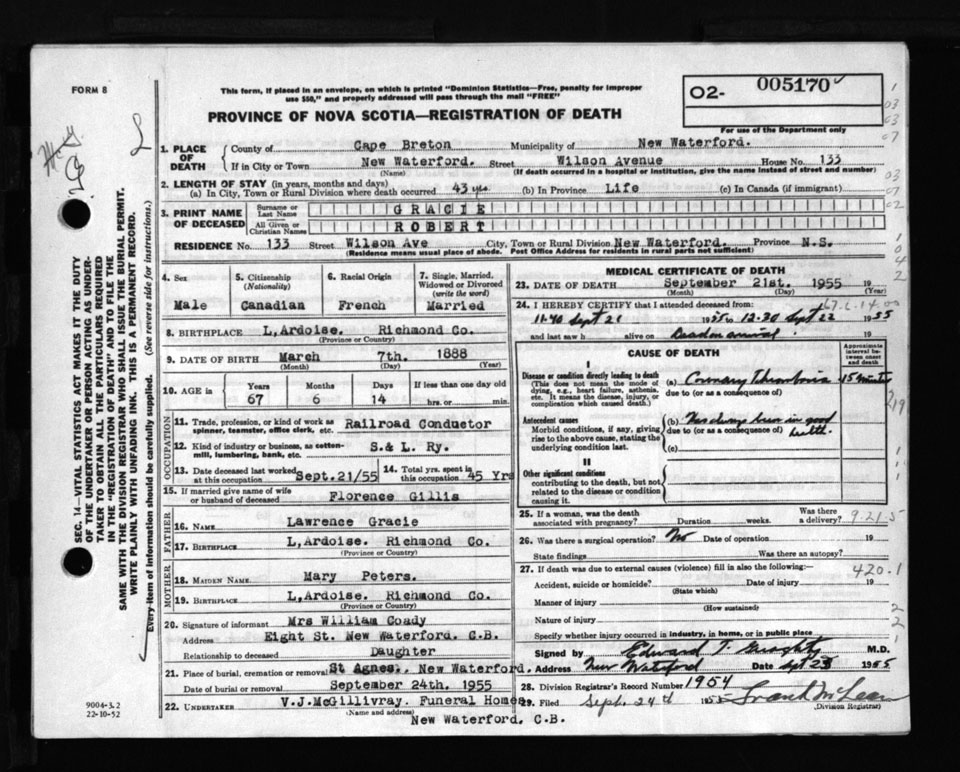 FORM 8
This form, if placed in an envelope, on which is printed "Dominion Statistics—Free, penalty for improper
use $50," and properly addressed will pass through the mail "FREE"
PROVINCE OF NOVA SCOTIA—REGISTRATION OF DEATH
02- 005170
For use of the Department only
1. PLACE OF DEATH
County of Cape Breton Municipality of New Waterford.
If in City or Town New Waterford. Street Wilson Avenue House No. 133
(Name) (If death occurred in a hospital or institution, give the name instead of street and number)
2. LENGTH OF STAY (in years, months and days)
(a) In City, Town or Rural Division where death occurred 43 yrs (b) In Province Life (c) In Canada (if immigrant)
3. PRINT NAME OF DECEASED
Surname or Last Name GRACIE
All Given or Christian Names ROBERT
RESIDENCE No. 133 Street Wilson Ave City, Town or Rural Division New Waterford. Province N.S.
(Residence means usual place of abode. Post Office Address for residents in rural parts not sufficient)
4. Sex Male
5. Citizenship (Nationality) Canadian
6. Racial Origin French
7. Single, Married, Widowed or Divorced (write the word) Married
8. BIRTHPLACE L,Ardoise. Richmond Co.
(Province or Country)
9. DATE OF BIRTH March 7th. 1888
(Month) (Day) (Year)
10. AGE is Years 67 Months 6 Days 14 If less than one day old hrs. or min.
OCCUPATION
11. Trade, profession, or kind of work as spinner, teamster, office clerk, etc. Railroad Conductor
12. Kind of industry or business, as cotton-mill, lumbering, bank, etc. S.& L. Ry.
13. Date deceased last worked at this occupation Sept.21/55
14. Total yrs. spent in this occupation 45 Yrs
15. If married give name of wife or husband of deceased Florence Gillis
FATHER
16. NAME Lawrence Gracie
17. BIRTHPLACE L,Ardoise. Richmond Co.
(Province or Country)
MOTHER
18. MAIDEN NAME Mary Peters.
19. BIRTHPLACE L,Ardoise. Richmond Co.
(Province or Country)
20. Signature of informant Mrs William Coady
Address Eight St. New Waterford. C.B.
Relationship to deceased Daughter
21. Place of burial, cremation or removal St Agnes., New Waterford.
Date of burial or removal September 24th. 1955
22. UNDERTAKER V.J.McGillivray. Funeral Homes
(Name and Address)
New Waterford, C.B.
MEDICAL CERTIFICATE OF DEATH
23. DATE OF DEATH September 21st. 1955 19
(Month) (Day) (Year)
24. I HEREBY CERTIFY that I attended deceased from
11.40 Sept 21 1955 to 12-30 Sept 22 1955
and last saw h alive on Dead on arrival 19
CAUSE OF DEATH
Approximate interval between onset and death
I
Disease or condition directly leading to death
(This does not mean the mode of dying, e.g., heart failure, asthenia, etc. It means the disease, injury, or complication which caused death.)
(a) Coronary Thrombosis 15 minutes
due to (or as a consequence of)
Antecedent causes
Morbid conditions, if any, giving rise to the above cause, stating the underlying condition last.
(b) Has always been in good health.
due to (or as a consequence of)
(c)
II
Other significant conditions
contributing to the death, but not related to the disease or condition causing it.
25. If a woman, was the death associated with pregnancy? Duration weeks. Was there a delivery?
9.21.5
26. Was there a surgical operation? No Date of operation 19
State findings Was there an autopsy?
27. If death was due to external causes (violence) fill in also the following:
420.1
Accident, suicide or homicide? Date of injury 19
(State which)
Manner of injury
(How sustained)
Nature of injury
Specify whether injury occurred in industry, in home, or in public place
Signed by Edward T. M.D.
Address New Waterford Date Sept 23 1955
28. Division Registrar's Record Number 1954
29. Filed Sept. 24th 1955 Frank McLean
(Division Registrar)
SEC. 14—VITAL STATISTICS ACT MAKES IT THE DUTY
OF THE UNDERTAKER OR PERSON ACTING AS UNDER-
TAKER TO OBTAIN ALL THE PARTICULARS REQUIRED
IN THE "REGISTRATION OF DEATH" AND TO FILE THE
SAME WITH THE DIVISION REGISTRAR WHO SHALL ISSUE THE BURIAL PERMIT.
WRITE PLAINLY WITH UNFADING INK. THIS IS A PERMANENT RECORD.
Every item of information should be carefully supplied. (See reverse side for instructions.)
9004-3.2
22-10-52